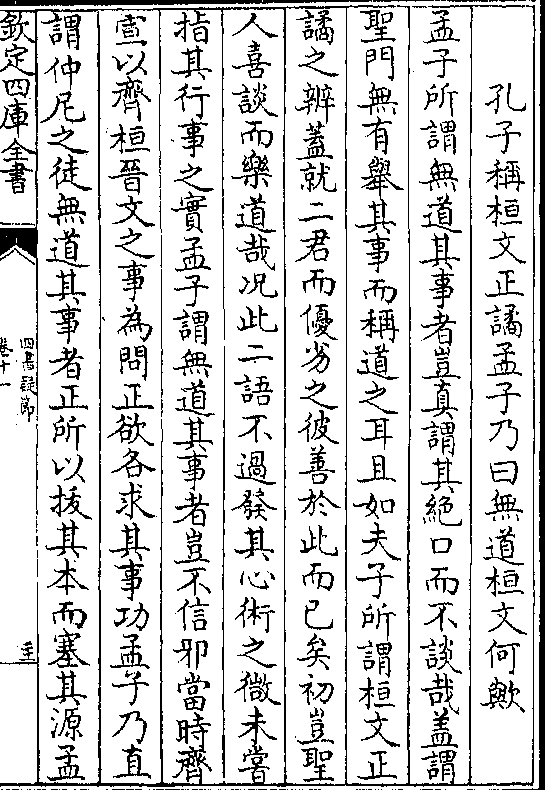 孔子稱桓文正譎孟子乃曰無道桓文何歟
孟子所謂無道其事者豈真謂其絶口而不談哉盖謂
聖門無有舉其事而稱道之耳且如夫子所謂桓文正
譎之辨蓋就二君而優劣之彼善於此而已矣初豈聖
人喜談而樂道哉况此二語不過發其心術之微未嘗
指其行事之實孟子謂無道其事者豈不信邪當時齊
宣以齊桓晉文之事為問正欲各求其事功孟子乃直
謂仲尼之徒無道其事者正所以拔其本而塞其源孟
欽定四庫全書
四書疑節
卷十一